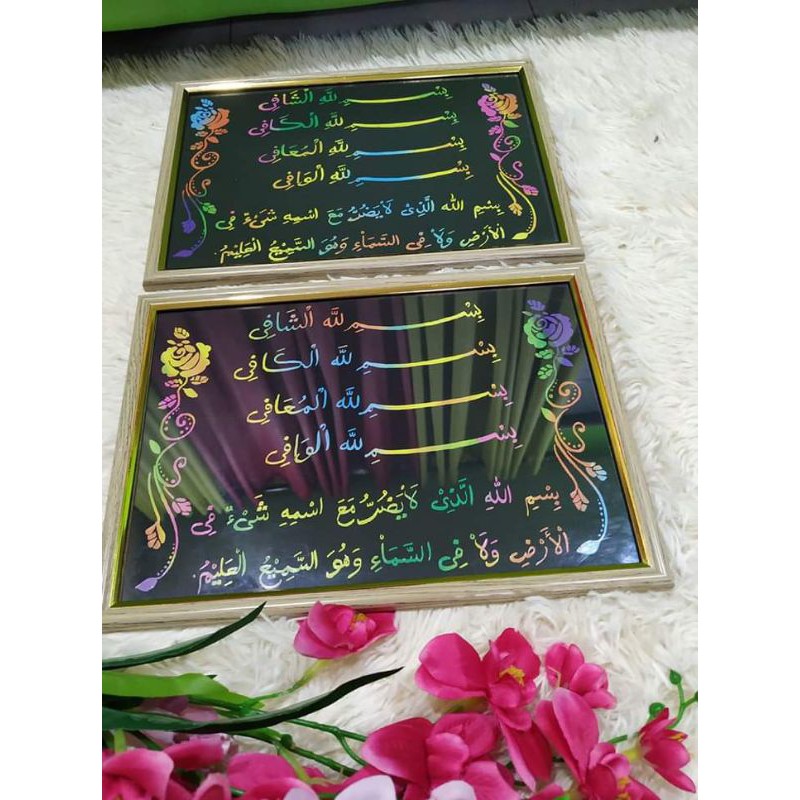 بِسْمِ للَّهِ الْشَّافِي
بِسْمِ للَّهِ الْكَافِي
بِسْمِ للَّهِ الْمُعَافِي
بِسْمِ للَّهِ الْوَافِي
بِسْمِ اللَّه الَّذِيْ لَايَضُرُّ مَعَ اسْمِهِ شَيْءٌ فِي
الْأَرْضِ وَلَا فِي السَّمَاءِ وَهُوَ السَّمِيْعُ الْعَلِيْمُ.
بِسْمِ للَّه الْشَافِي
بِسْمِ للَّه الْكَافِي
بِسْمِ للَّه الْمُعَافِي
بِسْمِ للَّه الْوَافِي
بِسْمِ اللَّهِ الَّذِيْ لَايَضُرُّ مَعَ اسْمِهِ شَيْءٌ فِي
الْأَرْضِ وَلَا فِي السَّمَاءِ وَهُوَ السَّمِيْعُ الْعَلِيْمُ.